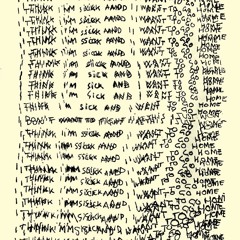 I THINK I'M SICK AND I WANT TO GO HOME
I THINK I'M SICK AND I WANT TO GO HOME
I THINK I'M SICK AND I WANT TO GO HOME
I THINK I'M SICK AND I WANT TO GO HOME
I THINK I'M SICK AND I WANT TO GO HOME
I THINK I'M SICK AND I WANT TO GO HOME
I THINK I'M SICK AND I WANT TO GO HOME
I THINK I'M SICK AND I WANT TO GO HOME
I DON'T WANT TO FIGHT I WANT TO GO HOME
I THINK I'M SICK AND I WANT TO GO HOME
I THINK I'M SICK AND I WANT TO GO HOME
I THINK I'M SICK AND I WANT TO GO HOME
I THINK I'M SICK AND I WANT TO GO HOME
I THINK I'M SICK AND I WANT TO GO HOME
I THINK I'M SICK AND I WANT TO GO HOME
I THINK I'M SICK AND I WANT TO GO HOME
I THINK I'M SICK AND I WANT TO GO HOME